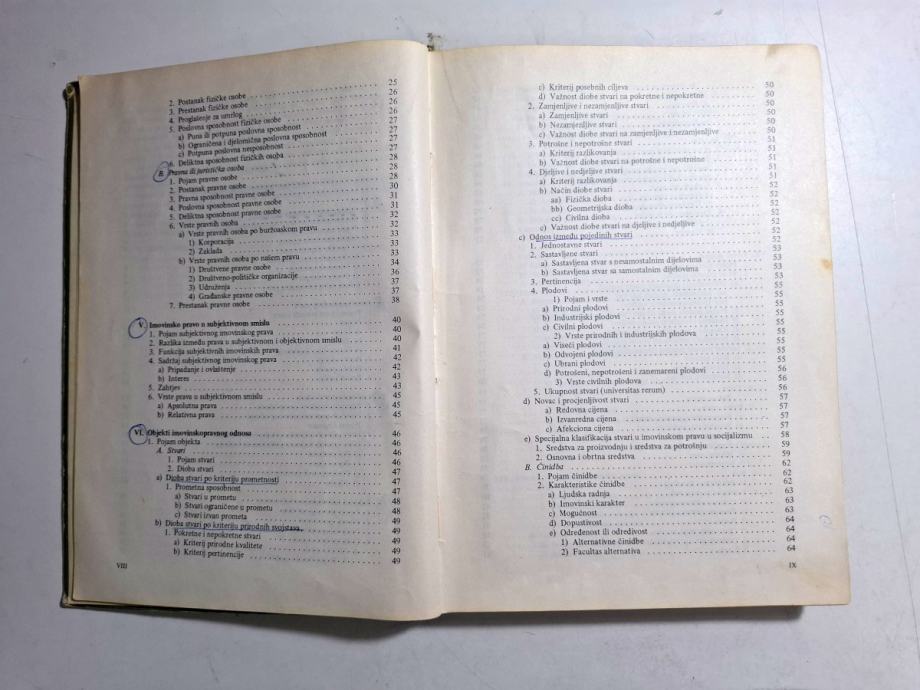 2. Postanak fizičke osobe 25
3. Prestanak fizičke osobe 26
4. Proglašenje za umrlog 26
5. Poslovna sposobnost fizičke osobe 26
a) Puna ili potpuna poslovna sposobnost 27
b) Ograničena i djelomična poslovna sposobnost 27
c) Potpuna poslovna nesposobnost 27
6. Deliktna sposobnost fizičkih osoba 27
B. Pravna ili juristička osoba 28
1. Pojam pravne osobe 28
2. Postanak pravne osobe 28
3. Pravna sposobnost pravne osobe 30
4. Poslovna sposobnost pravne osobe 31
5. Deliktna sposobnost pravne osobe 31
6. Vrste pravnih osoba 32
a) Vrste pravnih osoba po buržoaskom pravu 32
1) Korporacija 33
2) Zaklada 33
b) Vrste pravnih osoba po našem pravu 33
1) Društvene pravne osobe 34
2) Društveno-političke organizacije 36
3) Udruženja 37
4) Građanske pravne osobe 37
7. Prestanak pravne osobe 38
V. Imovinsko pravo u subjektivnom smislu 40
1. Pojam subjektivnog imovinskog prava 40
2. Razlika između prava u subjektivnom i objektivnom smislu 40
3. Funkcija subjektivnih imovinskih prava 41
4. Sadržaj subjektivnog imovinskog prava 42
a) Pripadanje i ovlaštenje 42
b) Interes 43
5. Zahtjev 43
6. Vrste prava u subjektivnom smislu 45
a) Apsolutna prava 45
b) Relativna prava 45
VI. Objekti imovinskopravnog odnosa 46
1. Pojam objekta 46
A. Stvari 46
1. Pojam stvari 46
2. Dioba stvari 47
a) Dioba stvari po kriteriju prometnosti 47
1. Prometna sposobnost 47
a) Stvari u prometu 47
b) Stvari ograničene u prometu 48
c) Stvari izvan prometa 48
b) Dioba stvari po kriteriju prirodnih svojstava 49
1. Pokretne i nepokretne stvari 49
a) Kriterij prirodne kvalitete 49
b) Kriterij pertinencije 49
VIII
c) Kriterij posebnih ciljeva 50
d) Važnost diobe stvari na pokretne i nepokretne 50
2. Zamjenljive i nezamjenljive stvari 50
a) Zamjenljive stvari 50
b) Nezamjenljive stvari 50
c) Važnost diobe stvari na zamjenljive i nezamjenljive 50
3. Potrošne i nepotrošne stvari 51
a) Kriterij razlikovanja 51
b) Važnost diobe stvari na potrošne i nepotrošne 51
4. Djeljive i nedjeljive stvari 51
a) Kriterij razlikovanja 52
b) Način diobe stvari 52
aa) Fizička dioba 52
bb) Geometrijska dioba 52
cc) Civilna dioba 52
c) Važnost diobe stvari na djeljive i nedjeljive 52
c) Odnos između pojedinih stvari 52
1. Jednostavne stvari 52
2. Sastavljene stvari 53
a) Sastavljena stvar s nesamostalnim dijelovima 53
b) Sastavljena stvar sa samostalnim dijelovima 53
3. Pertinencija 53
4. Plodovi 55
1) Pojam i vrste 55
a) Prirodni plodovi 55
b) Industrijski plodovi 55
c) Civilni plodovi 55
2) Vrste prirodnih i industrijskih plodova 55
a) Viseći plodovi 55
b) Odvojeni plodovi 55
c) Ubrani plodovi 55
d) Potrošeni, nepotrošeni i zanemareni plodovi 55
3) Vrste civilnih plodova 56
5. Ukupnost stvari (universitas rerum) 56
d) Novac i procjenljivost stvari 57
a) Redovna cijena 57
b) Izvanredna cijena 57
c) Afekciona cijena 57
e) Specijalna klasifikacija stvari u imovinskom pravu u socijalizmu 58
1. Sredstva za proizvodnju i sredstva za potrošnju 59
2. Osnovna i obrtna sredstva 59
B. Činidba 62
1. Pojam činidbe 62
2. Karakteristike činidbe 62
a) Ljudska radnja 63
b) Imovinski karakter 63
c) Mogućnost 63
d) Dopustivost 64
e) Određenost ili odredivost 64
1) Alternativne činidbe 64
2) Facultas alternativa 64
IX